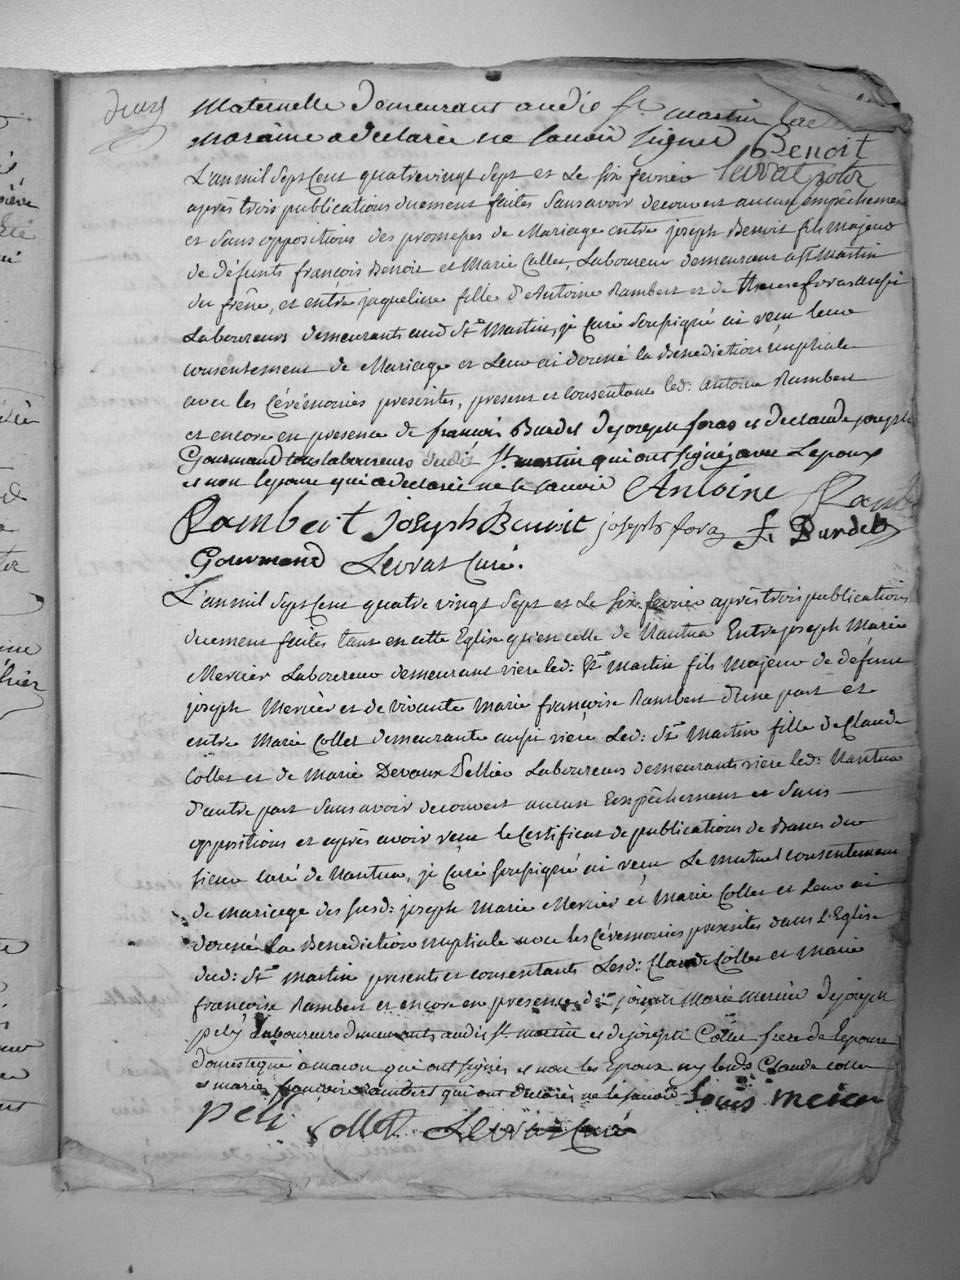 maternelle demeurant audit St martin la
maraine a declarée ne savoir signer Benoit
L'an mil sept Cent quatre vingt sept et Le six fevrier Levrat
après trois publications duement faites sans avoir decouvert aucun empêchement
et sans oppositions des promesses de Mariage entre joseph Benoit fils majeur
de défunts françois Benoit et Marie Collet, Laboureur demeurant a St Martin
du frêne, et entre jaqueline fille d'Antoine Rambert et de therese foras aussi
Laboureurs demeurants aud St Martin, je Curé soussigné ai reçu leur
consentement de Mariage et Leur ai donné la Benediction nuptiale
avec les Cérémonies prescrites, present et consentant led: Antoine Rambert
et encore en presence de françois Burdet de joseph foras et de claude joseph
Gourmand tous laboureurs dudit St martin qui ont signé avec Lepoux
et non lepouse qui a declarée ne le savoir Antoine
Rambert joseph Benoit joseph foraz f. Burdet
Gourmand Levrat Curé.
L'an mil sept Cent quatre vingt sept et Le six fevrier après trois publications
duement faites tant en cette Eglise qu'en celle de Nantua Entre joseph Marie
Mercier Laboureur demeurant riere led: St martin fils Majeur de défunt
joseph Mercier et de vivante Marie françoise Rambert d'une part et
entre Marie Collet demeurante aussi riere Led: St Martin fille de Claude
Collet et de Marie Devaux Pellier Laboureurs demeurants riere led: Nantua
d'autre part sans avoir decouvert aucun Empêchement et sans
oppositions et après avoir reçu le Certificat de publications de Bancs du
sieur Curé de Nantua, je Curé soussigné ai reçu Le mutuel consentement
de mariage des susd: joseph Marie Mercier et Marie Collet et Leur ai
donné La Benediction nuptiale avec les Cérémonies prescrites dans L'Eglise
dud: St martin presents et consentants Lesd: Claude Collet et Marie
françoise Rambert et encore en presence de joseph Marie Mercier de joseph
pely Laboureurs demeurants audit St martin et de joseph Collet frere de Lepouse
domestique à macon qui ont signés et non les Epoux ny lesd: Claude collet
et marie françoise Rambert qui ont declarés ne le savoir Louis mercier
peli Collet Levrat Curé